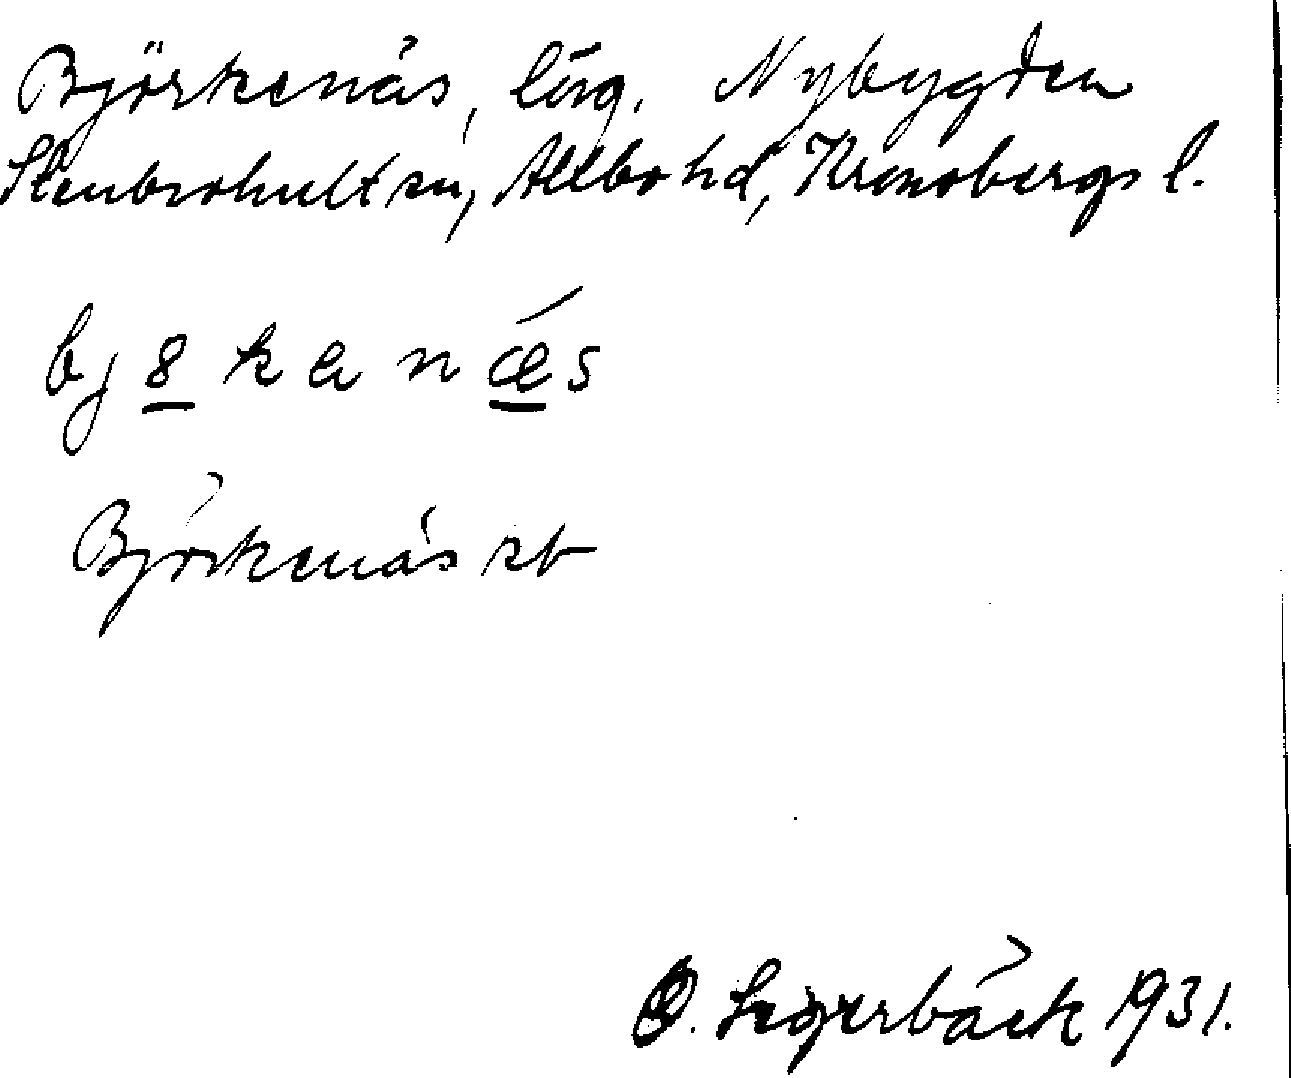 Björkenäs, läg. Nybygden
Stenbrohult sn, Allbo hd, Kronobergs l.
bj8kanǽs
Björkenäs rb
O. Segerbäck 1931.